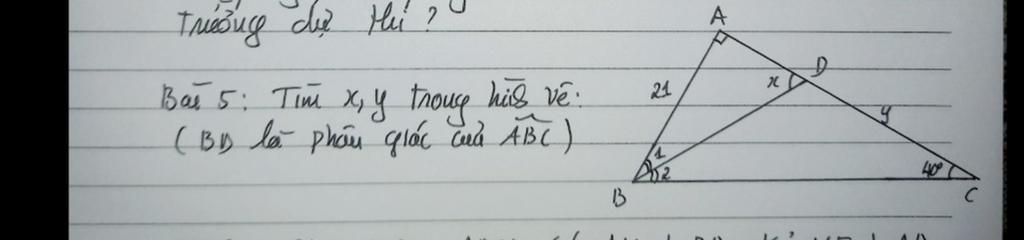 trường dự thi?
Bài 5: Tìm x, y trong hình vẽ:
(BD là phân giác của ABC)
A
21
x
D
y
1
2
40°
B
C